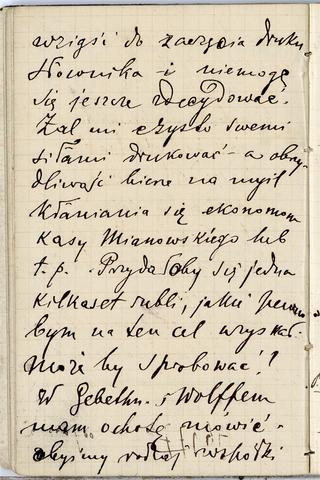 wziąść do zaczęcia druku
Słownika i niemogę
się jeszcze zdecydować.
Żal mi czysto swemi
siłami drukować – a obrzy-
dliwość bierze na myśl
kłaniania się ekonomom
Kasy Mianowskiego lub
t. p. Przydałoby się jedna
kilkaset rubli, jakie pewno
bym na ten cel wyskał.
może by sprobować?
Z Gebethn. i Wolffem
mam ochotę mówić.
abyśmy rodzaj wspołki